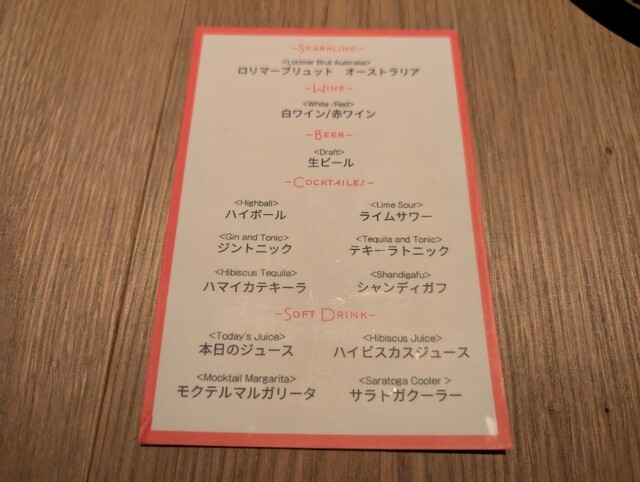 -SPARKLING-
<Lorimer Brut Australia>
ロリマーブリュット　オーストラリア
-WINE-
<White /Red>
白ワイン/赤ワイン
-BEER-
<Draft>
生ビール
-COCKTAILES-
<Highball> <Lime Sour>
ハイボール ライムサワー
<Gin and Tonic> <Tequila and Tonic>
ジントニック テキーラトニック
<Hibiscus Tequila> <Shandigafu>
ハマイカテキーラ シャンディガフ
-SOFT DRINK-
<Today's Juice> <Hibiscus Juice>
本日のジュース ハイビスカスジュース
<Mocktail Margarita> <Saratoga Cooler >
モクテルマルガリータ サラトガクーラー